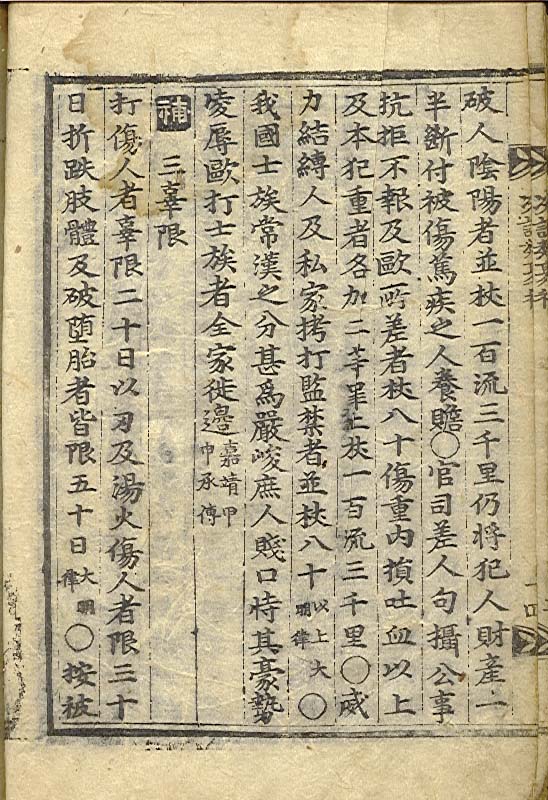 破人陰陽者並杖一百流三千里仍將犯人財産一
半斷付被傷篤疾之人養贍○官司差人句攝公事
抗拒不報及歐所差者杖八十傷重內損吐血以上
及本犯重者各加二等罪止杖一百流三千里○威
力結縛人及私家拷打監禁者並杖八十以上大明律○
我國士族常漢之分甚爲嚴峻庶人賤口恃其豪勢
凌辱歐打士族者全家徙邊嘉靖甲申承傳
補 三辜限
打傷人者辜限二十日以刃及湯火傷人者限三十
日折跌肢體及破墮胎者皆限五十日大明律○按被